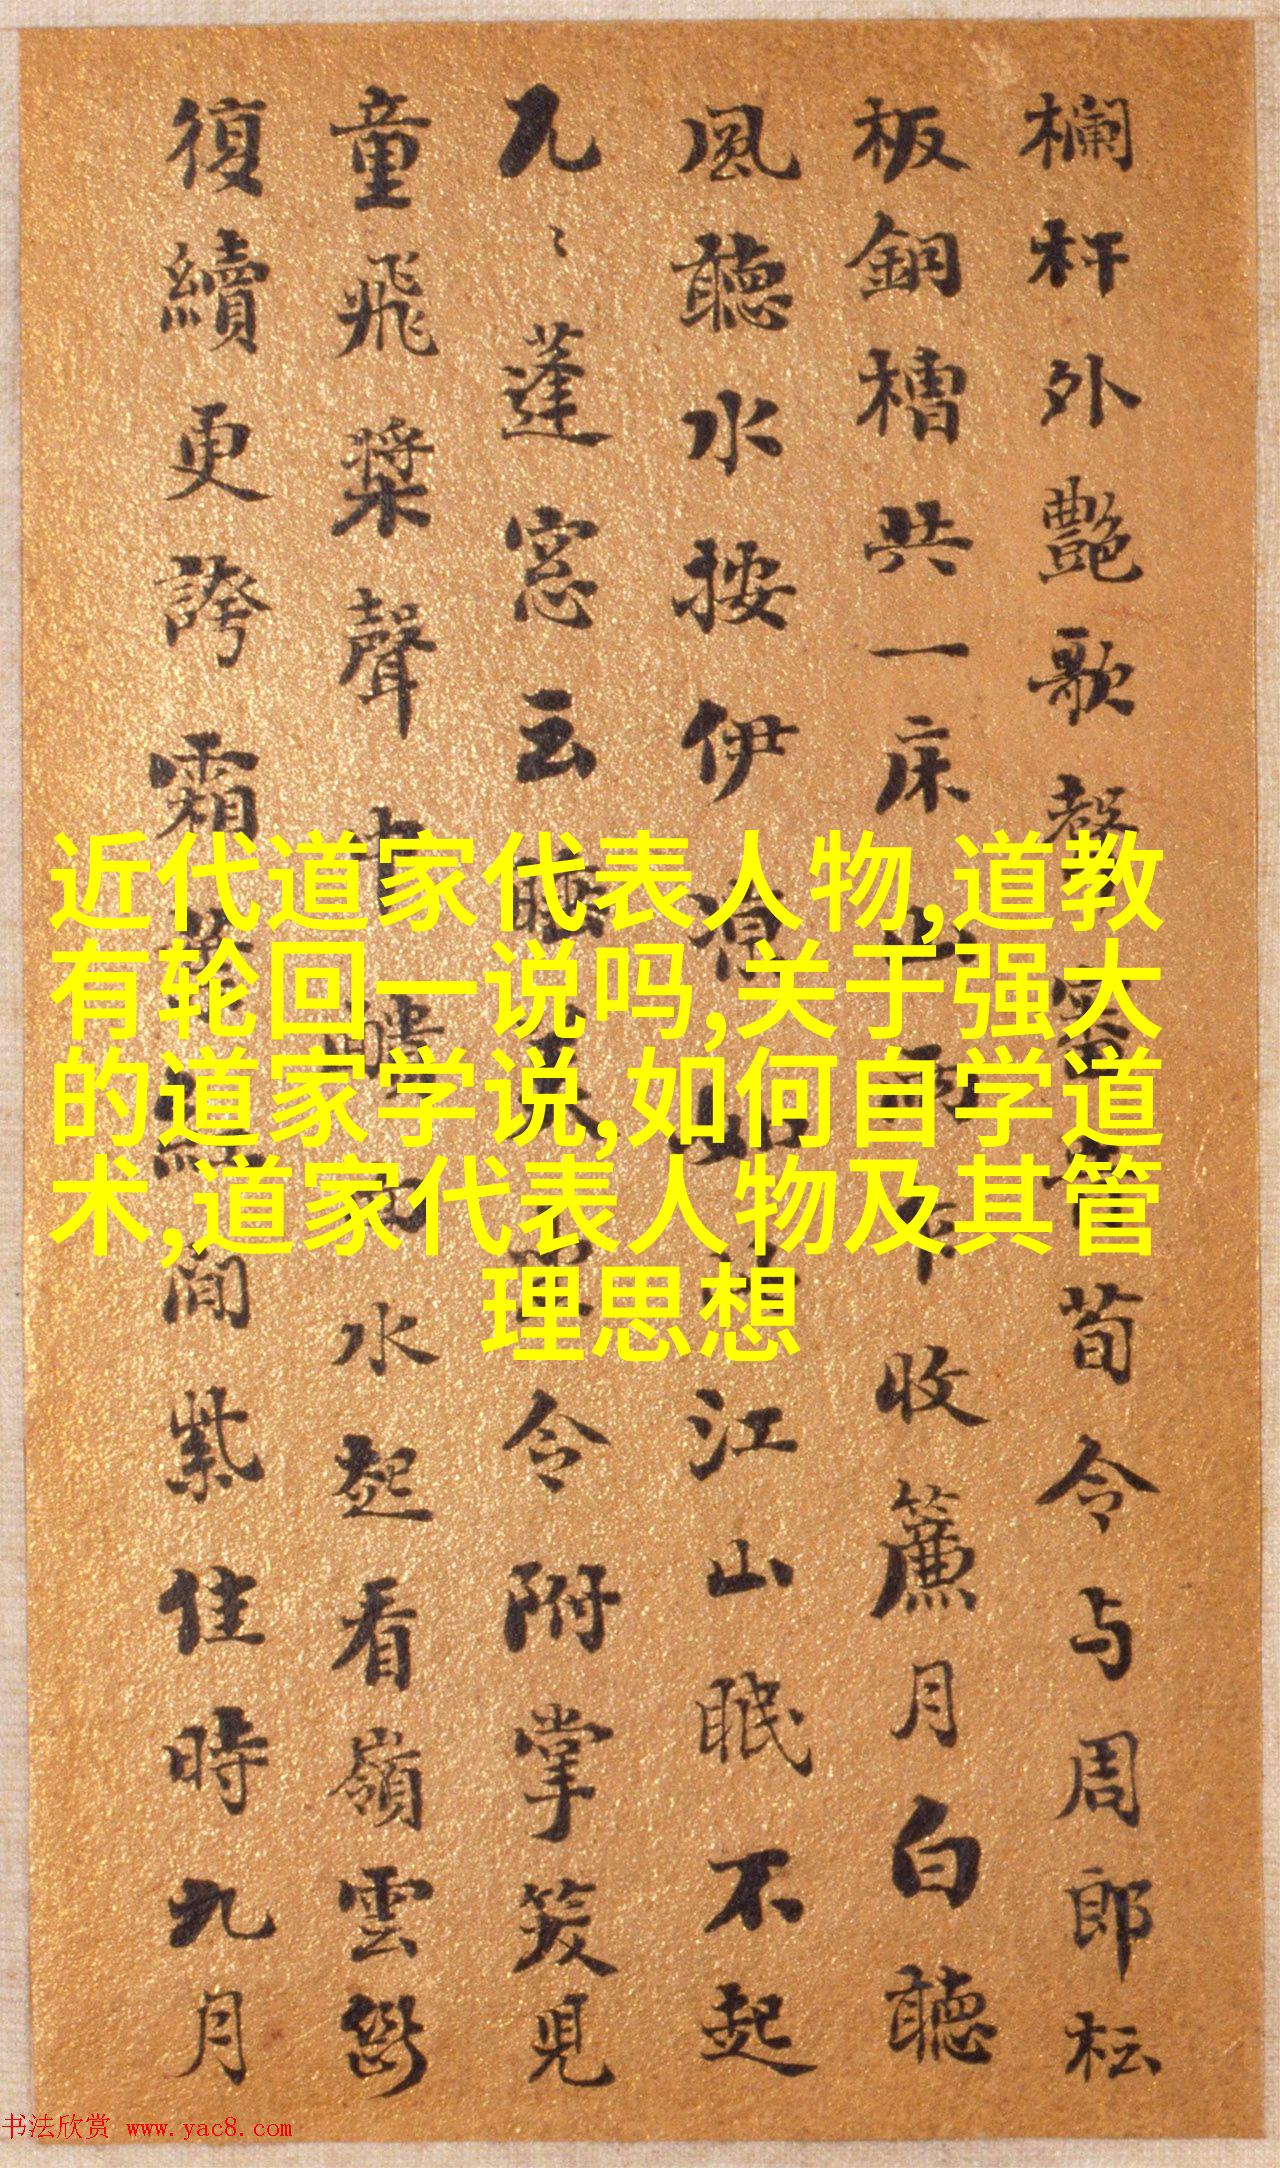 欄杆外艷歌聲荀令与周郎枟
板銅槽共一床山雨乍收簾月白聽
風聽水按伊涼如此江山眠不起
〻蓬窓云睡令附掌笑見
童飛槳聲水起看嶺雲
復續更誇霜葉紅間紫佳時九月
近代道家代表人物,道教
有轮回一说吗,关于强大
的道家学说,如何自学道
术,道家代表人物及其管
理思想
书法欣赏 www.yac8.com